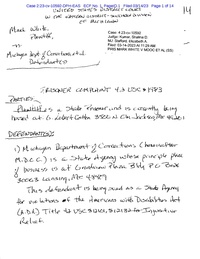 Case 2:23-cv-10592-DPH-EAS ECF No. 1, PageID.1 Filed 03/14/23 Page 1 of 14
UNITED STATES DISTRICT COURT
Mark White,
Plaintiff,
Case: 2:23-cv-10592
Judge:
MJ: Stafford, Elizabeth A.
Filed: 03-14-2023 At 11:29 AM
PRIS MARK WHITE V MDOC ET AL (SS)
v.
Michigan Dept of Corrections, et al.
Defendants
PRISONER COMPLAINT 42 USC § 1983
PARTIES:
Plaintiff is a State Prisoner and is currently being
DEFENDANTS:
1) Michigan Department of Corrections (hereinafter
M.D.O.C.) is a State Agency whose principle place
of business is at Grandview Plaza Bldg P.O. Box
30003 Lansing, MI
This defendant is being sued as a State Agency
for violations of the Americans with Disabilities Act
(A.D.A.) Title 42 USC § 12101, § 12132 for Injunctive
Relief.